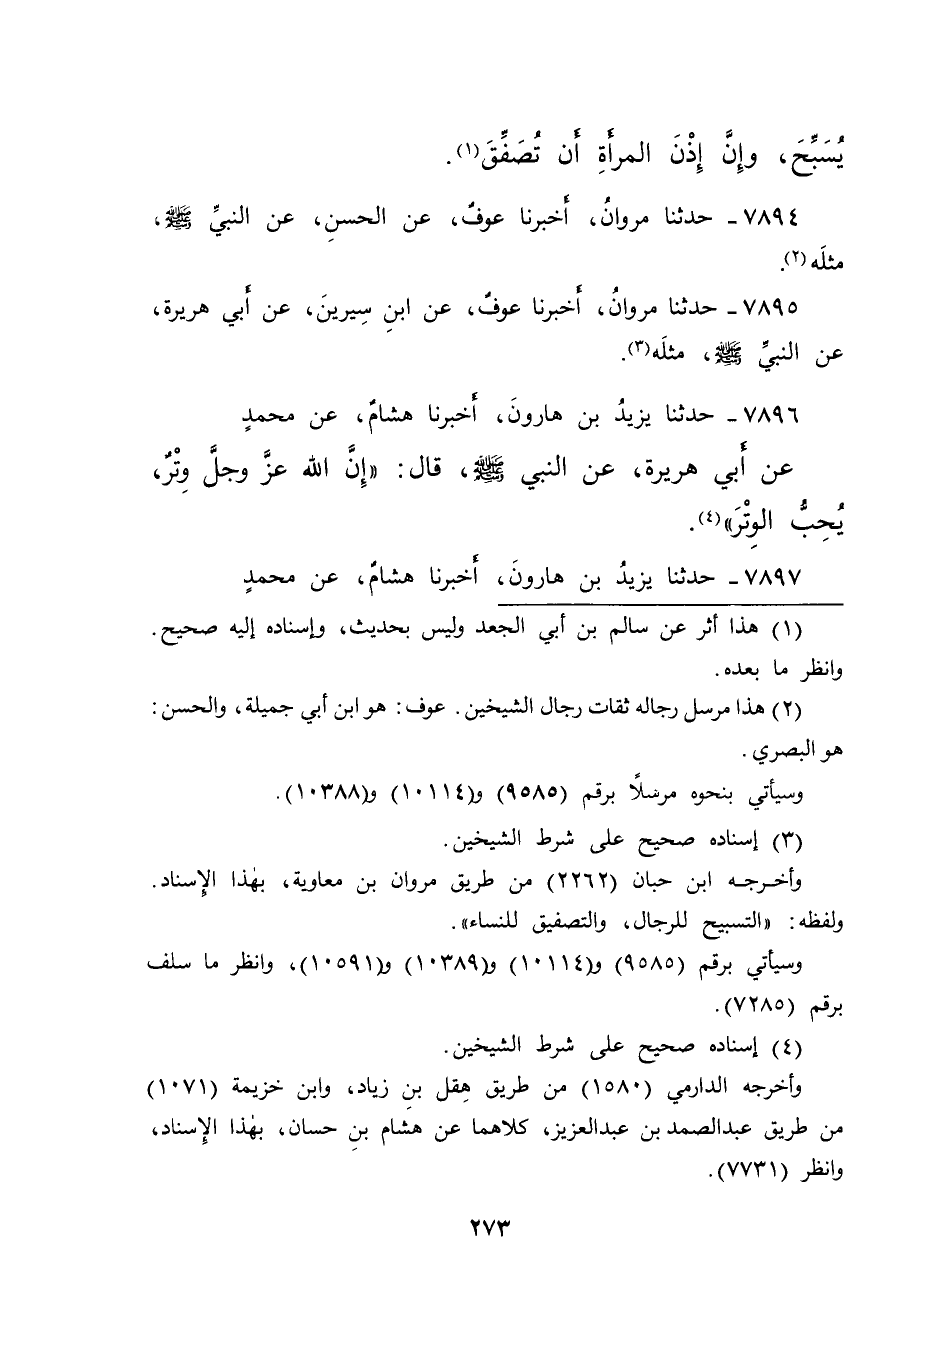 يُسَبِّحَ، وإِنَّ إِذْنَ المرأَةِ أَن تُصَفِّقَ(١).
٧٨٩٤ ـ حدثنا مروانُ، أَخبرنا عوفٌ، عن الحسنِ، عن النبيِّ ﷺ،
مثلَه(٢).
٧٨٩٥ ـ حدثنا مروانُ، أَخبرنا عوفٌ، عن ابنِ سِيرينَ، عن أَبي هريرة،
عن النبيِّ ﷺ، مثلَه(٣).
٧٨٩٦ ـ حدثنا يزيدُ بن هارونَ، أَخبرنا هشامٌ، عن محمدٍ
عن أَبي هريرة، عن النبي ﷺ، قال: «إِنَّ الله عزَّ وجلَّ وِتْرٌ،
يُحِبُّ الوِتْرَ»(٤).
٧٨٩٧ ـ حدثنا يزيدُ بن هارونَ، أَخبرنا هشامٌ، عن محمدٍ
(١) هذا أثر عن سالم بن أبي الجعد وليس بحديث، وإسناده إليه صحيح.
وانظر ما بعده.
(٢) هذا مرسل رجاله ثقات رجال الشيخين. عوف: هو ابن أبي جميلة، والحسن:
هو البصري.
وسيأتي بنحوه مرسلًا برقم (٩٥٨٥) و(١٠١١٤) و(١٠٣٨٨).
(٣) إسناده صحيح على شرط الشيخين.
وأخرجه ابن حبان (٢٢٦٢) من طريق مروان بن معاوية، بهٰذا الإسناد.
ولفظه: «التسبيح للرجال، والتصفيق للنساء».
وسيأتي برقم (٩٥٨٥) و(١٠١١٤) و(١٠٣٨٩) و(١٠٥٩١)، وانظر ما سلف
برقم (٧٢٨٥).
(٤) إسناده صحيح على شرط الشيخين.
وأخرجه الدارمي (١٥٨٠) من طريق هِقل بنِ زياد، وابن خزيمة (١٠٧١)
من طريق عبدالصمد بن عبدالعزيز، كلاهما عن هشام بنِ حسان، بهٰذا الإسناد،
وانظر (٧٧٣١).
٢٧٣